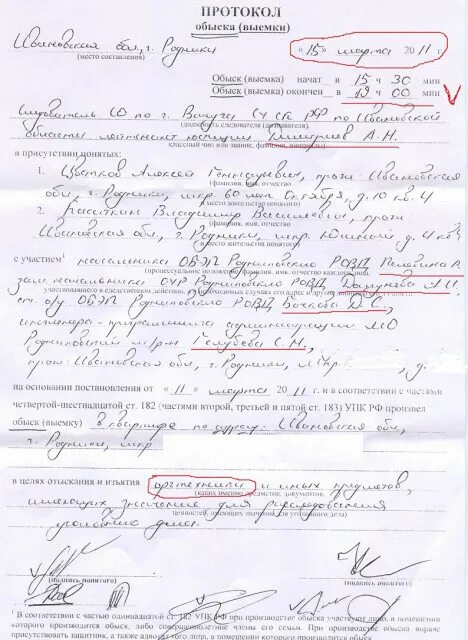 ПРОТОКОЛ
обыска (выемки)
Ивановская обл, г. Родники «15» марта 2011 г.
(место составления)
Обыск (выемка) начат в 15 час 30 мин
Обыск (выемка) окончен в 18 00 мин
Следователь СО по г. Вичуга СУ СК РФ по Ивановской
(должность следователя (дознавателя),
области лейтенант юстиции Дмитриев А.Н.
классный чин или звание, фамилия, инициалы)
в присутствии понятых:
1. Цветков Алексей Геннадьевич, прож: Ивановская
(фамилия, имя, отчество
обл, г. Родники, мкр 60 лет Октября, д. 10 кв. 4
и место жительства понятого)
2. Касаткин Владимир Васильевич, прож:
(фамилия, имя, отчество
Ивановская обл, г. Родники, мкр Южный, д. 4 кв.
и место жительства понятого)
с участием¹ начальника ОБЭП Родниковского РОВД
(процессуальное положение, фамилия, имя, отчество каждого лица,
зам. начальника ОУР Родниковского РОВД
участвовавшего в следственном действии,
ст. о/у ОБЭП Родниковского РОВД Бочкова Д.С.
инженера-программиста администрации МО
Родниковский м/р-н Голубева С.Н.,
прож: Ивановская обл, г. Родники, мкр. , д.
на основании постановления от «11» марта 2011 г. и в соответствии с частями
четвертой-шестнадцатой ст. 182 (частями второй, третьей и пятой ст. 183) УПК РФ произвел
обыск (выемку) в квартире по адресу: Ивановская обл,
г. Родники, мкр
в целях отыскания и изъятия оргтехники и иных предметов,
(каких именно предметов, документов,
имеющих значение для расследования
ценностей, имеющих значение для уголовного дела)
уголовного дела.
(подпись понятого) (подпись понятого)
¹ В соответствии с частью одиннадцатой ст. 182 УПК РФ при производстве обыска участвуют лицо, в помещении
которого производится обыск, либо совершеннолетние члены его семьи. При производстве обыска вправе
присутствовать защитник, а также адвокат того лица, в помещении которого производится обыск.